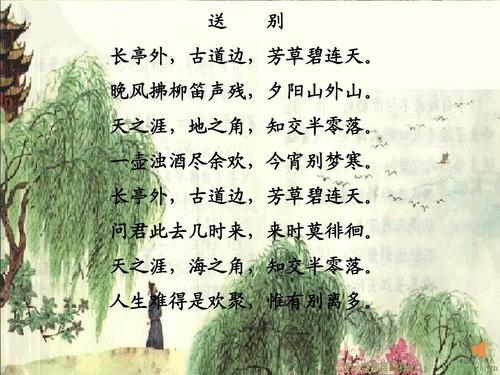 送 别
长亭外，古道边，芳草碧连天。
晚风拂柳笛声残，夕阳山外山。
天之涯，地之角，知交半零落。
一壶浊酒尽余欢，今宵别梦寒。
长亭外，古道边，芳草碧连天。
问君此去几时来，来时莫徘徊。
天之涯，海之角，知交半零落。
人生难得是欢聚，惟有别离多。